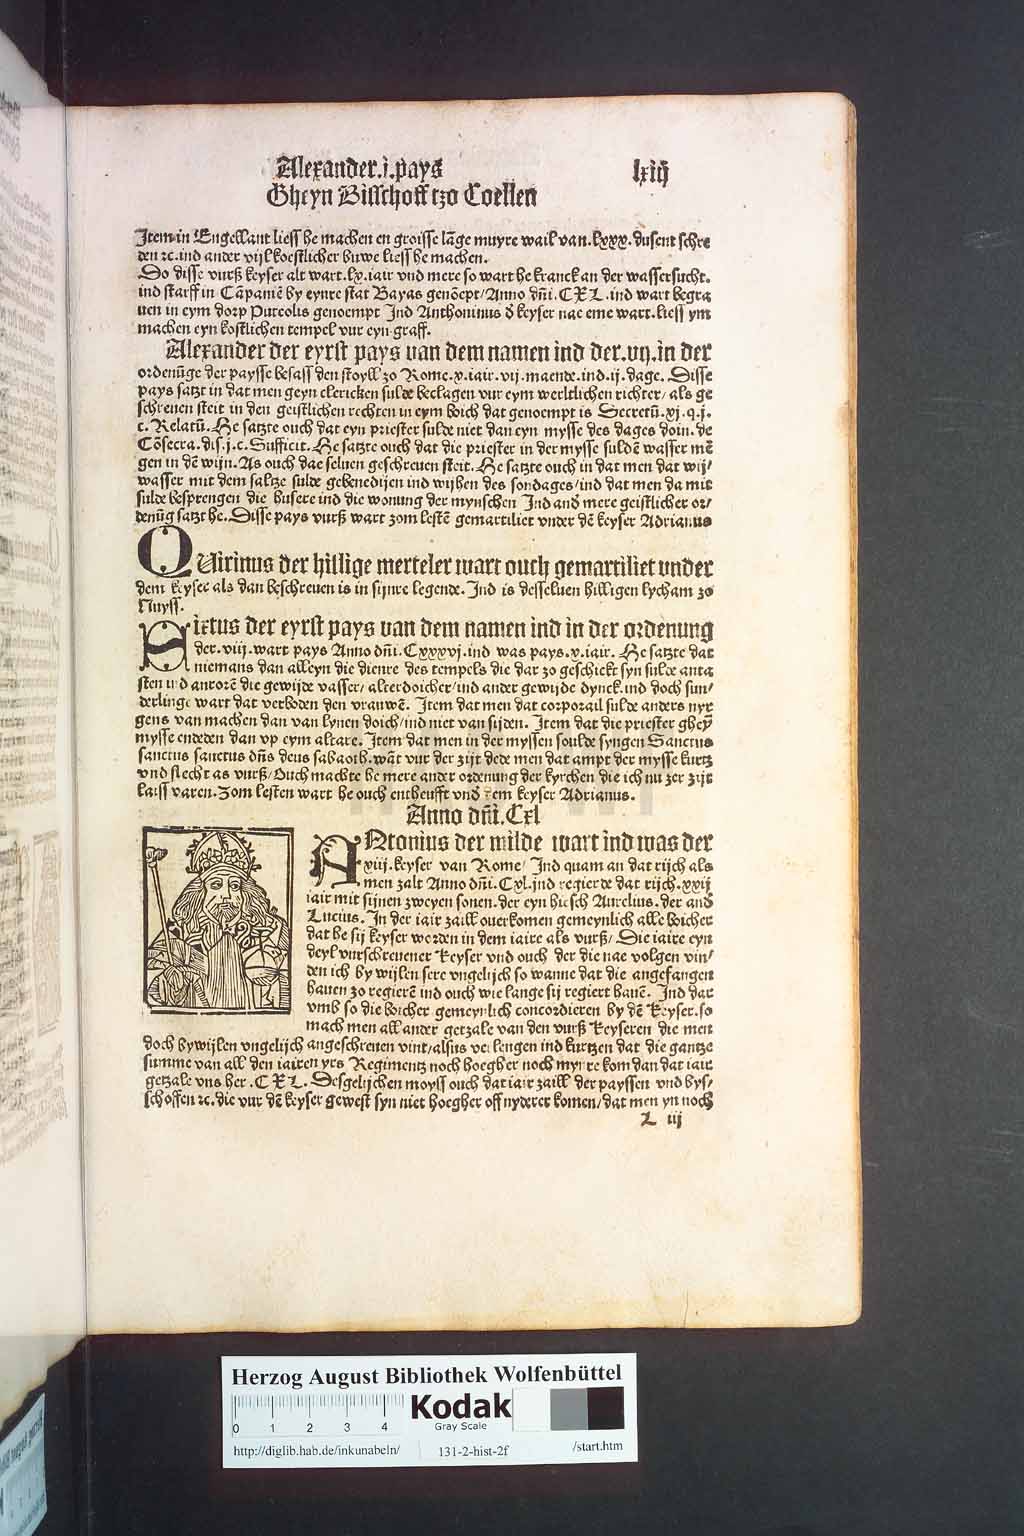 Alexander.i.pays lxiij
Gheyn Bisschoff tzo Coellen
Item in Engellant liess he machen en groisse lāge muyre wail van.lxxx.dusent schre
den ⁊c.ind ander vijl koestlicher buwe liess he machen.
Do disse vurß keyser alt wart.lx.iair vnd mere so wart he kranck an der wassersucht.
ind starff in Cāpaniē by eynre stat Bayas genōept/Anno dn̄i.CXL.ind wart begra
uen in eym dorp Puteolis genoempt Ind Anthoninus d̄ keyser nae eme wart.liess ym
machen eyn kostlichen tempel vur eyn graff.
Alexander der eyrst pays van dem namen ind der.vij.in der
ordenūge der paysse besass den stoyll zo Rome.x.iair.vij.maende.ind.ij.dage. Disse
pays satzt in dat men geyn clericken sulde beclagen vur eym werltlichen richter/als ge
schreuen steit in den geistlichen rechten in eym boich dat genoempt is Decretū.xj.q.j.
c.Relatū.He satzte ouch dat eyn priester sulde niet dan eyn mysse des dages doin.de
Cōsecra.dis.j.c.Sufficit.He satzte ouch dat die priester in der mysse suldē wasser mē
gen in dē wijn.As ouch dae seluen geschreuen steit.He satzte ouch in dat men dat wij/
wasser mit dem saltze sulde gebenedijen ind wijhen des sondages/ind dat men da mit
sulde besprengen die husere ind die wonung der mynschen Ind and̄ mere geistlicher or/
denūg satzt he.Disse pays vurß wart zom lestē gemartiliet vnder dē keyser Adrianus
QUirinus der hillige merteler wart ouch gemartiliet vnder
dem keyser als dan beschreuen is in sijnre legende. Ind is desseluen hilligen lycham zo
Nuyss.
Sixtus der eyrst pays van dem namen ind in der ordenung
der.viij.wart pays Anno dn̄i.Cxxxvj.ind was pays.x.iair. He satzte dat
niemans dan alleyn die dienre des tempels die dar zo geschickt syn sulde anta
sten ind anrorē die gewijde vasser/alterdoicher/ind ander gewijde dynck.ind doch sun/
derlinge wart dat verboden den vrauwē. Item dat men dat corporail sulde anders nyr
gens van machen dan van lynen doich/ind niet van sijden. Item dat die priester ghey̅
mysse endeden dan vp eym altare.Item dat men in der myssen soulde syngen Sanctus
sanctus sanctus dn̄s deus sabaoth.wāt vur der zijt dede men dat ampt der mysse kurtz
vnd slecht as vurß/Ouch machte he mere ander ordenung der kyrchen die ich nu zer zijt
laiss varen.Zom lesten wart he ouch entheufft vnd̄ dem keyser Adrianus.
Anno dn̄i.Cxl
ANtonius der milde wart ind was der
xiij.keyser van Rome/ Ind quam an dat rijch als
men zalt Anno dn̄i.Cxl.jnd regierde dat rijch.xxij
iair mit sijnen zweyen sonen.der eyn hiesch Aurelius.der and̄
Lucius. In der iair zaill ouerkomen gemeynlich alle boicher
dat he sij keyser worden in dem iaire als vurß/ Die iaire eyn
deyl vurschreuener keyser vnd ouch der die nae volgen vin/
den ich by wijlen sere vngelijch so wanne dat die angefangen
hauen zo regierē ind ouch wie lange sij regiert hauē. Ind dar
vmb so die boicher gemeynlich concordieren by dē keyser.so
mach men all ander getzale van den vurß keyseren die men
doch bywijlen vngelijch angeschreuen vint/alsus verlengen ind kurtzen dat die gantze
summe van all den iairen yrs Regimentz noch hoegher noch mynre kom dan dat iair
getzale vns her.CXL. Desgelijchen moyss ouch dat iair zaill der payssen vnd bys/
schoffen ⁊c.die vur dē keyser gewest syn niet hoegher off nyderer komen/dat men yn noch
L iij
Herzog August Bibliothek Wolfenbüttel
0 1 2 3 4
Kodak
Gray Scale
http://diglib.hab.de/inkunabeln/ 131-2-hist-2f /start.htm